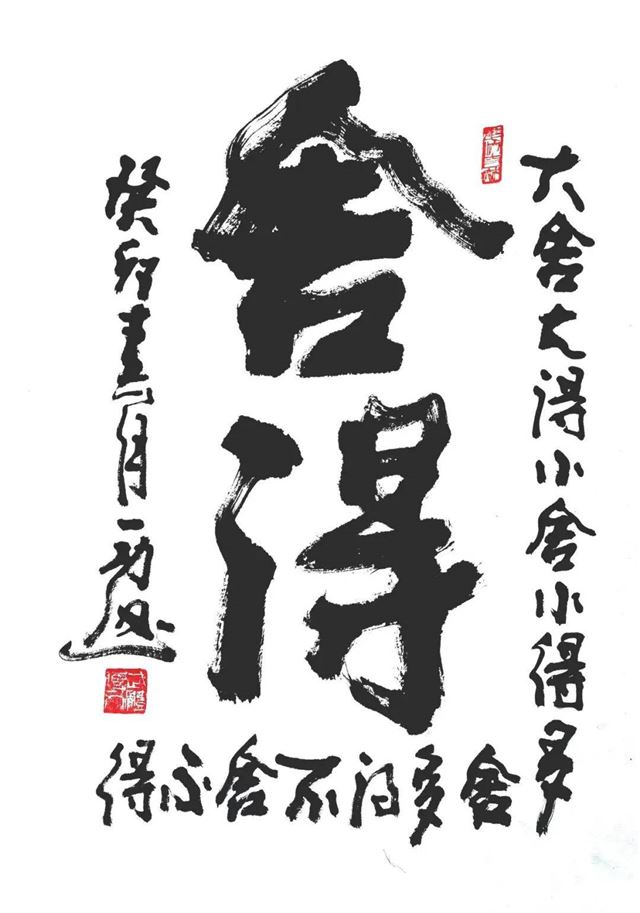 舍得
大舍大得小舍小得多
舍多得不舍不得
癸卯
月